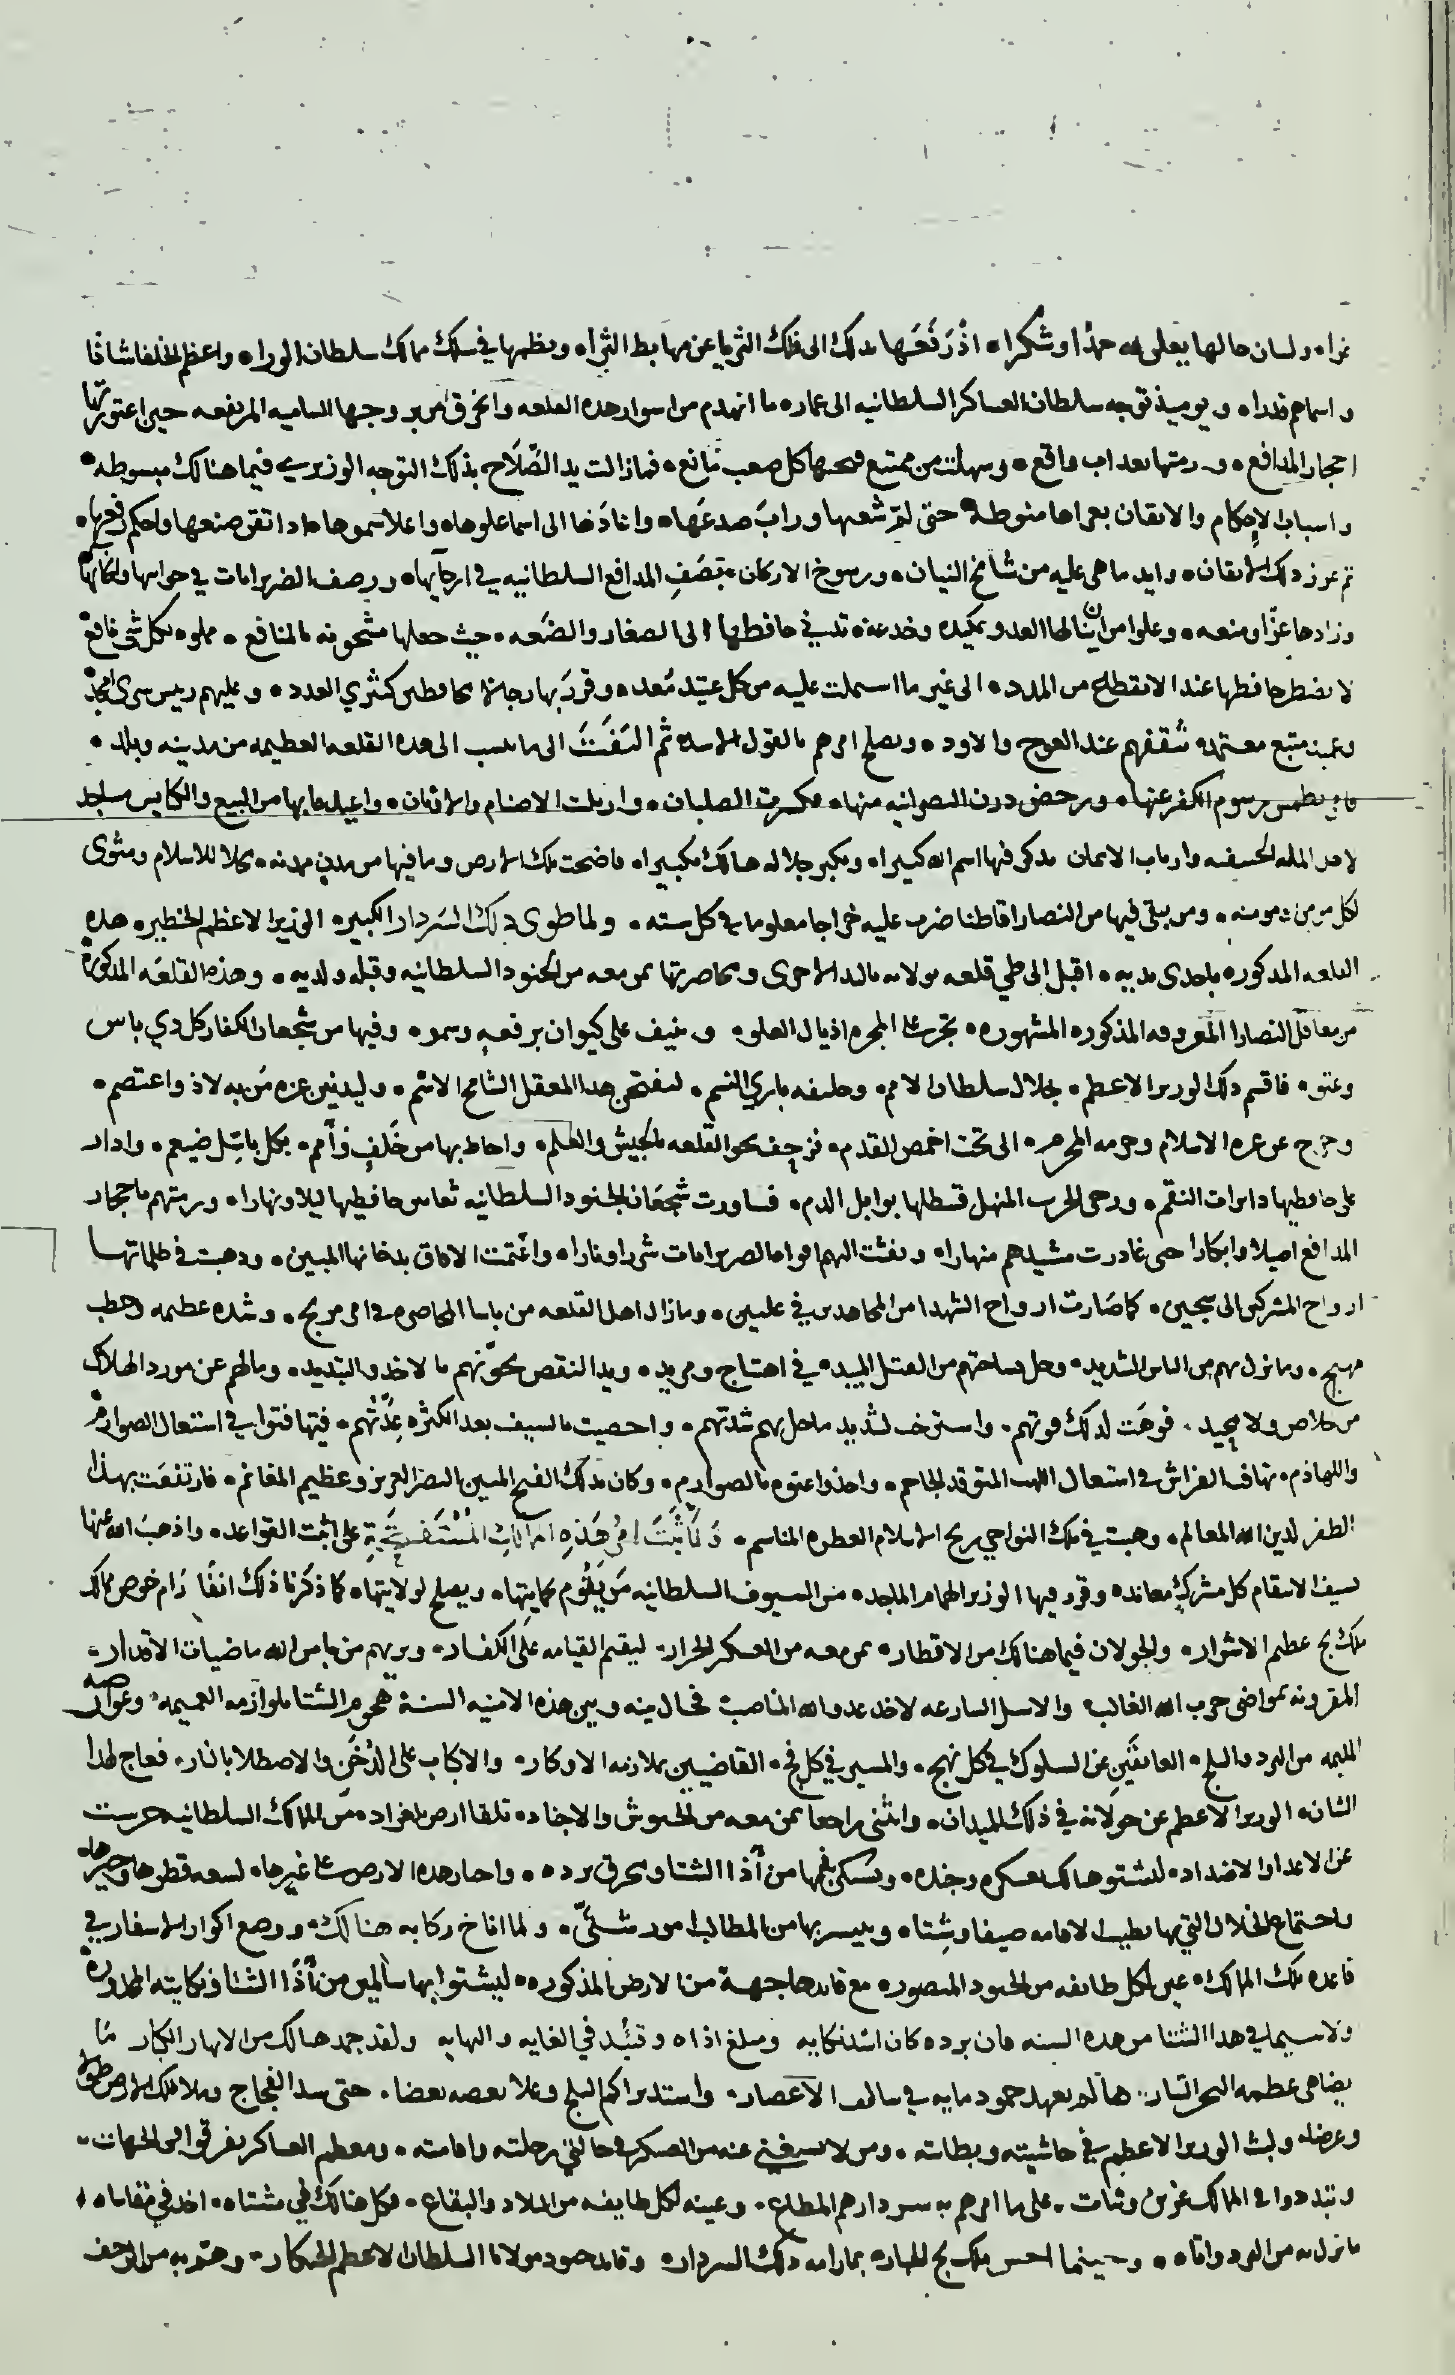 ولسان حالها يتلى لله حمدا وشكرا ه اذ رَفَعَها بذلك الى فلك الثريا عن مهابط الثرى ه ونظمها في سلك ممالك سلطان الورا ه واعظم الخلفا شانا
واسماهم قدرا ه ويوميذ توجه سلطان العساكر السلطانيه الى عماره ما انهدم من اسوار هذه القلعه وانخرق من بروجها الساميه المرتفعه حين اعتورتها
احجار المدافع ه ورمتها بعذاب واقع ه وسهلت من ممتنع فتحها كل صعب مانع ه فمازالت يد الصّلاح بذلك التوجه الوزيري فيما هنالك مبسوطه ه
واسباب الإحكام والاتقان بعراها منوطة ه حتى لمّ شعبها ورابَ صدعَها ه واعادَها الى اسما علوها ه واعلا سموها ه اذ اتقن صنعها واحكم رفعها ه
ثم عزز ذلك الاتقان ه وايد ما هي عليه من شامخ البنيان ه ورسوخ الاركان ه بصَفِ المدافع السلطانيه في ارجآيها ه ورصف الضربزانات في
وزادها عزّا ومنعه ه وعلوا من ان ينالها العدو بمكيده وخدعة ه تدني حافظها الى الصغار والضّعه ه حيث جعلها مشحونه بالمنافع ه مملوه بكل شى نافع
لا يضطر حافظها عند الانقطاع من المدد ه الى غير ما اشتملت عليه من كل عتيد مُعد ه وقرر بها رجالا محافظين كثيري العدد ه وعليهم رييس سرى
متبع معتمد ه يثقفهم عند العوج والاود ه ويصلح امرهم بالقول الاسد ه ثم التفَتَ الى ما ينسب الى هذه القلعه العظيمه من مدينه وبلد ه
بطمس رسوم الكفر عنها ه ورحض درن النصرانيه منها ه فكسرت الصلبان ه وازيلت الاصنام والاوثان ه واعيد ما بها من البيع والكنايس مساجد
لاهل المله الحنيفيه وارباب الايمان يذكر فيها اسم الله كثيرا ه ويكبر جلاله هنالك تكبيرا ه فاضحت تلك الارض وما فيها من مدن مدينه ه محلا للاسلام ومثوى
لكل مومن ومومنه ه ومن بقي فيها من النصارا قاطنا ضرب عليه خراجا معلوما في كل سنه ه ولما طوى ذلك السَردار الكبير ه الوزير الاعظم الخطير ه هذه
القلعه المذكوره باحدى يديه ه اقبل الى طي قلعه يولانه باليد الاخرى ومحاصرتها بمن معه من الجنود السلطانيه وقبله ولديه ه وهذه القلعه المذكورة
من معاقل النصارا المعروفه المذكوره المشهوره ه تجر على المجره اذيال العلو ه وتنيف على كيوان برفعهٍ وسمو ه وفيها من شجعان الكفار كل ذي باس
وعتو ه فاقسم ذلك الوزير الاعظم ه بجلال سلطان الامم ه وخليفه باري النسم ه ليفتحن هذا المعقل الشامخ الاشم ه وليدنين عزه مَن به لاذ واعتصم ه
وخرج عن عزه الاسلام وحرمه المحرم ه الى تحت اخمص القدم ه فزحف نحو القلعه بالجيش والعلم ه واحاط بها من خَلفٍ وأَمم ه بكل باسِل ضيغم ه وادار
على حافظيها دايرات النقم ه ورحى الحرب المنهل قسطلها بوابل الدم ه فساورت شجعَان الجنود السلطانيه حافظيها ليلا ونهارا ه ورمتهم باحجار
المدافع اصيلا وابكارا ه حتى غادرت مشيدهم منهارا ه ونفثت اليهم افواه الضربزانات شررا ونارا ه واغتمت الافاق بدخانها المبين ه وذهبت في ظلماتها
ارواح المشركين الى سجين ه كما صارت ارواح الشهدا من المجاهدين في عليين ه ومازال اهل القلعه من باسا المحاصره في امر مريج ه وشده عظيمه وخطب
مهيج ه وما نزل بهم من الباس الشديد ه وحل بساحتهم من القتل المبيد ه في اهتياج ومزيد ه ويد النقص نحوتهم بالاخذ والتبديد ه ومالهم عن مورد الهلاك
من خلاص ولا محيد ه فوهت لذلك قوتهم ه واسترخت لشديد ما حل بهم شدتهم ه واحصيت بالسيف بعد الكثره عِدَّتهم ه فتهافتوا في اشتعال الصوارم
واللهاذم ه تهافت الفراش في اشتعال اللهب المتوقد الجاحم ه واخذوا عنوه بالصوارم ه وكان بذلك الفتح المبين النصر العزيز وعظيم المغانم ه فارتفعَت بهذا
الظفر لدين الله المعالم ه وهبت في تلك النواحي ريح الاسلام العطره المناسم ه وَلمّا ثَبَتَ امرُ هَذِهِ المُسْتَفتحَةِ على اثبت القواعد ه واذهبَ الله عنها
بسيف الانتقام كل مشركٍ معاند ه وقرر فيها الوزير الهمام الماجد ه من السيوف السلطانيه مَن يَقُوم بحمايتها ه ويصلح لولايتها ه كما ذكرنا ذلك انفًا رَام خوض ممالك
ملك بج عظيم الاشرار ه والجولان فيما هنالك من الاقطار ه بمن معه من العسكر الجرار ه ليقيم القيامه على الكفار ه ويريهم من باس الله ماضيات الاقدار ه
المقرونه بمواضي حرب الله الغالب ه والاسل السارعه لاخذ عدو الله المناصب ه فحال بينه وبين هذه الامنيه السنية هجوم الشتا بلوازمه العميمه ه وعوارضه
المليمه من البرد والثلج ه العائقَينِ عن السلوك في كل نهج ه والمسير في كل فج ه القاضيين بملازمه الاوكار ه والاكباب على الدُخَنِ والاصطلا بالنار ه فعاج لهذا
الشان ه الوزير الاعظم عن جولانه في ذلك الميدان ه وانثنى راجعا بمن معه من الجيوش والاجناد ه تلقا ارض بلغراد ه من الممالك السلطانيه حرست
عن الاعدا والاضداد ه ليشتو هنالك بعسكره وجنده ه ويسكن بها من أذا الشتا ومحرق برده ه واختار هذه الارض على غيرها ه لسعه قطرها وخيرها ه
واجتماع الخلال التي بها يطيب الاقامه صيفا وشِتا ه ويتيسر بها من المطالب امور شَتىّ ه ولما اناخ ركابه هنالك ه ووضع اكوار الاسفار في
قاعده تلك الممالك ه عين لكل طايفه من الجنود المنصوره مع قايدها جهة من الارض المذكوره ه ليشتوا بها سالمين من أذا الشتا ونكايته
ولا سيما في هذا الشتا من هذه السنه فان برده كان اشد نكايه ومبلغ اذاه في الغايه والنهايه ولقد جمد هنالك من الانهار الكبار مَا
يضاهي عظمه البحر التيار ه مما لم يعهد جمود مايه في سالف الأعصار ه واشتد تراكم الثلج وعلا بعضه بعضا ه حتى سد الفجاج وملا تلك الارض طولا
وعرضا ه ولبث الوزير الاعظم في حاشيته وبطانته ه ومن لا يستغني عنه من العسكر في حالتي رحلته واقامته ه ومعظم العساكر تفرقوا في الجهات ه
وتبددوا في الممالك ه على ما امرهم به سردارهم المطاع ه وعينه لكل طايفه من البلاد والبقاع ه فكل هنالك في مشتاه ه اخذ في مقاساه
ما نزل به من البرد ه وحينما احس ملك بج بما رامه ذلك السردار ه وقايد جنود مولانا السلطان الاعظم ه